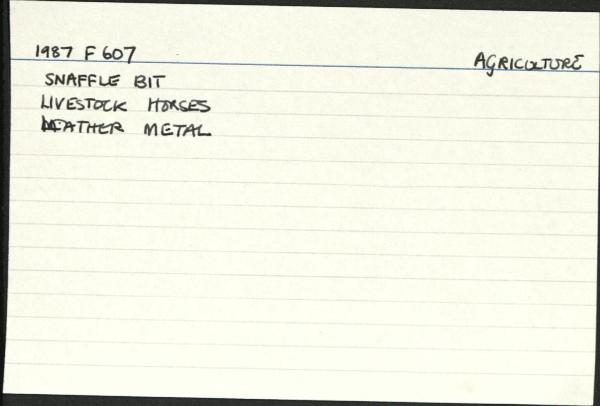 1987 F 607 AGRICULTURE
SNAFFLE BIT
LIVESTOCK HORSES
LEATHER METAL